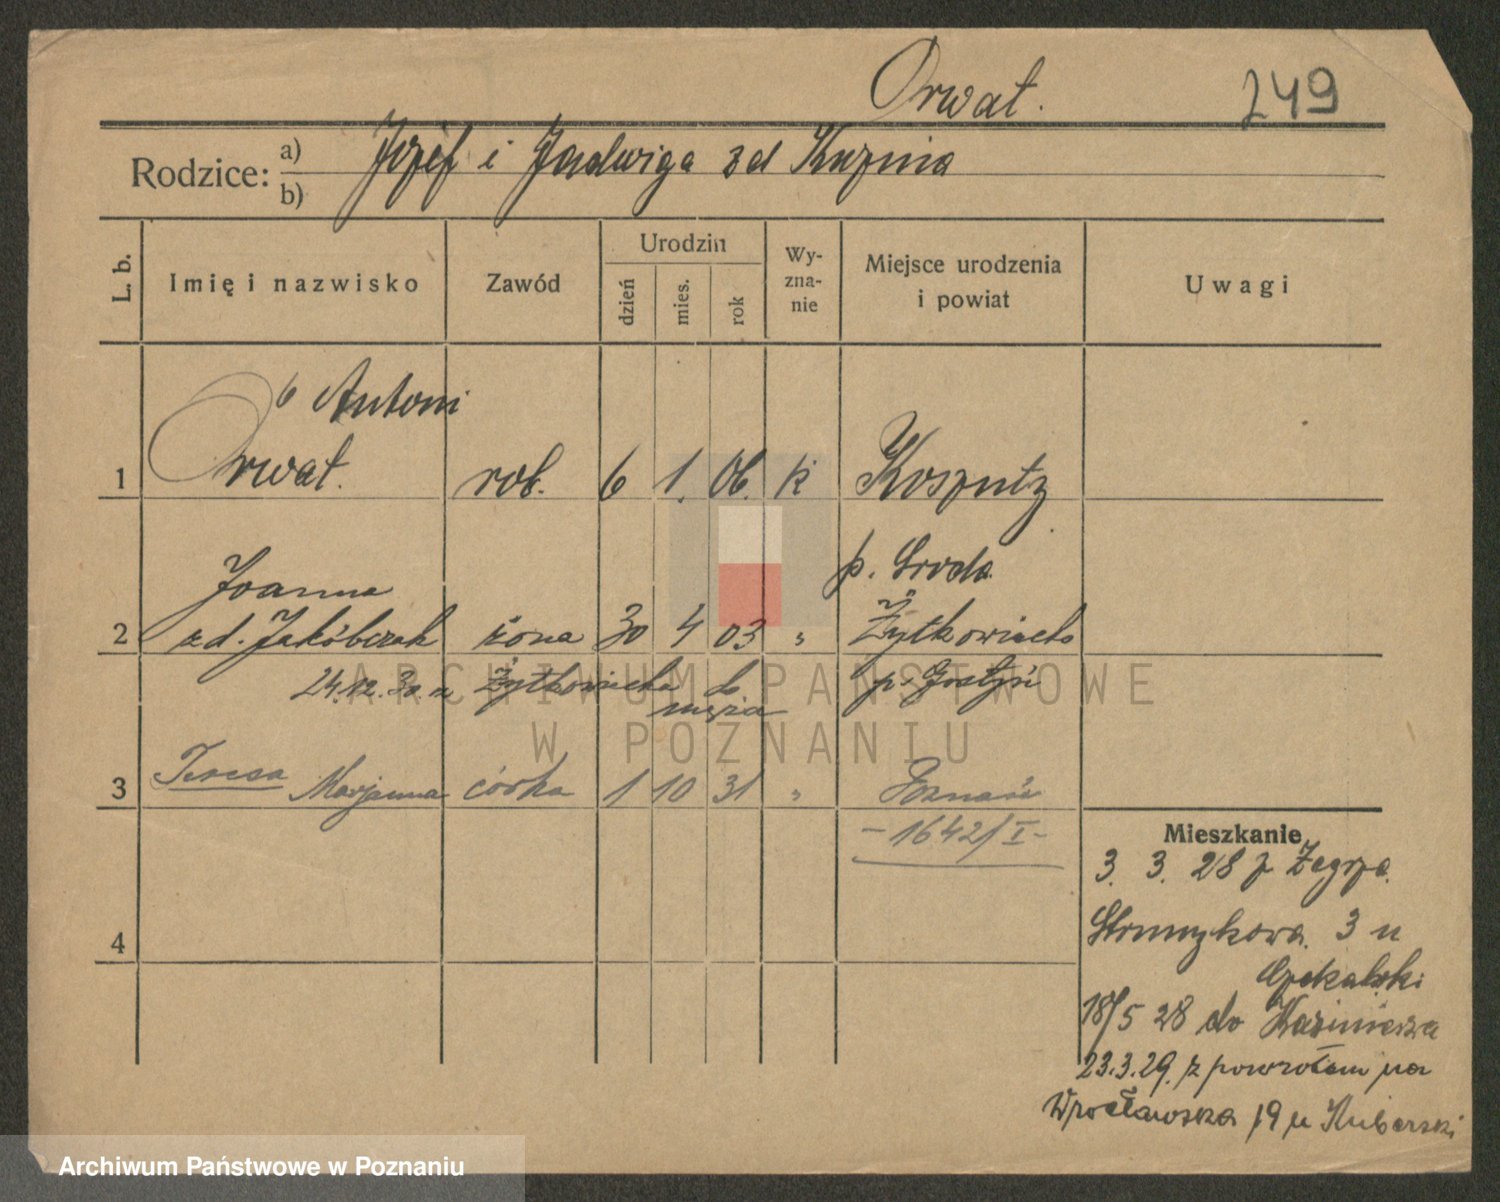 Orwat. 249
Rodzice: a) b) Józef i Jadwiga zd Kuznia
L. b. Imię i nazwisko Zawód Urodzin dzień mies. rok Wy-zna-nie Miejsce urodzenia i powiat Uwagi
Antoni
1 Orwat. rob. 6 1. 06. k Koszuty
p. Sroda
Joanna
2 zd. Jakóbczak żona 30 4 03 " Żytkowiecko
24.12.30. z Żytkowiecka do p. Gostyń
męża
3 Teresa Marjanna córka 1 10 31 " Poznań
-1642/I-
Mieszkanie
3. 3. 28 z Zegrza.
4 Strumykowa. 3 u
18/5 28 do Kazimierza
23.3.29. z powrotem na
Wrocławska 19 u Kuberski
ARCHIWUM PAŃSTWOWE
W POZNANIU
Archiwum Państwowe w Poznaniu